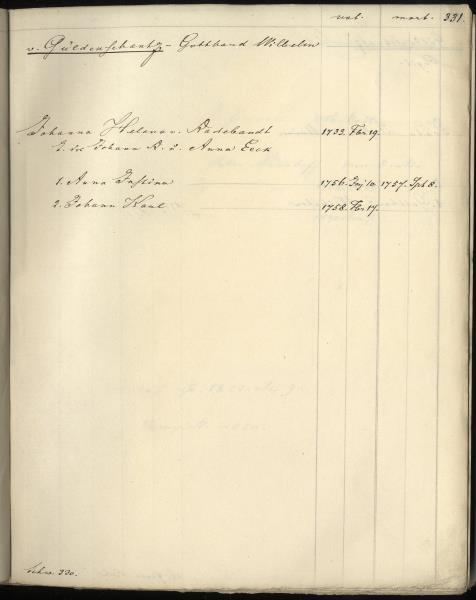 nat. mort. 331.
v. Güldenschantz - Gotthard Wilhelm
Johanna Helena v. Radebandt 1733. Fbr. 19.
T. des Johann R. u. Anna Eeck
1. Anna Justina 1756. Juj 10. 1757. Spt. 8.
2. Johann Karl 1758. Fbr. 17.
330.